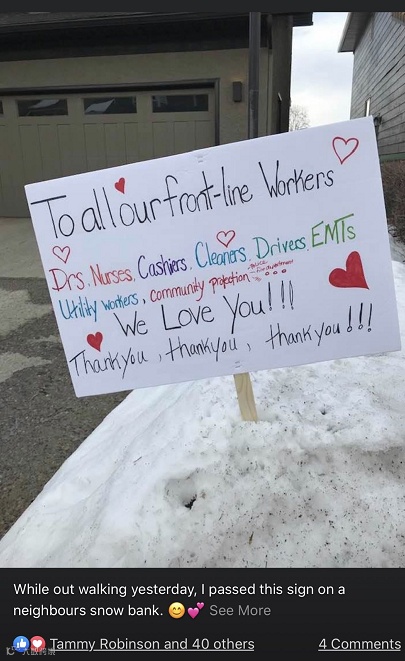 To all our front-line Workers
Drs. Nurses. Cashiers. Cleaners. Drivers. EMTs
Utility workers, community protection
We Love You!!!
Thank you, thank you, thank you!!!
While out walking yesterday, I passed this sign on a
neighbours snow bank. 😊💕 See More
Tammy Robinson and 40 others 4 Comments